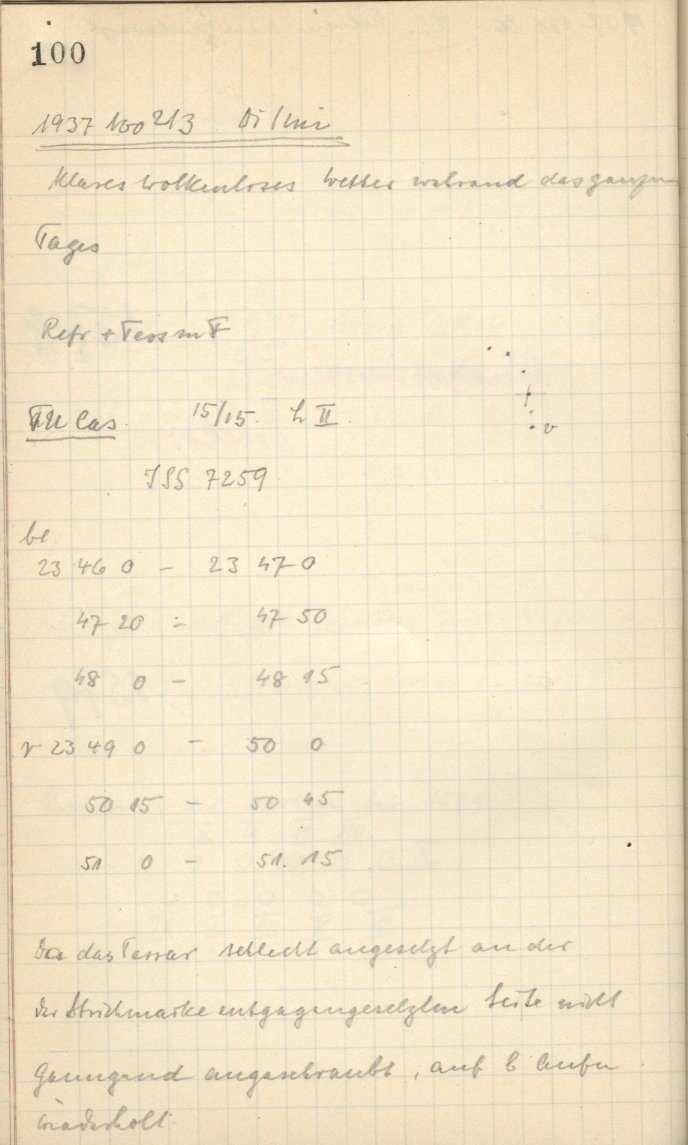 100
1937 Nov 2/3 Di/Mi
Klares Wolkenloses Wetter während des ganzen
Tages
Refr + Tess m F
TU Cas 15/15 L II
JSS 7259
v
be
23 46 0 – 23 47 0
47 20 – 47 50
48 0 – 48 15
v 23 49 0 – 50 0
50 15 – 50 45
51 0 – 51 15
Da das Tessar schlecht angesetzt an der
der Strichmarke entgegengesetzten Seite nicht
genügend angeschraubt, auf
wiederholt.